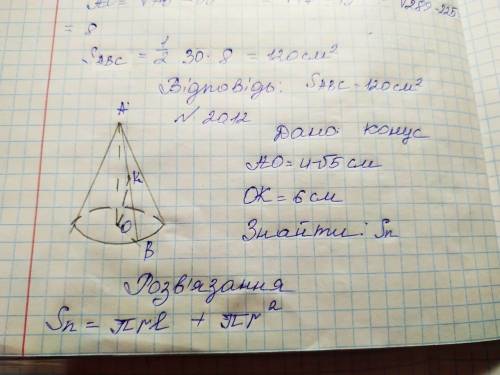 = 8
S ABC = 1/2 30 · 8 = 120 см²
Відповідь: S ABC - 120 см²
N 2012
Дано: конус
AO = 4√55 см
OK = 6 см
Знайти: Sп
A
K
O
B
Розв'язання
Sп = πrl + πr²